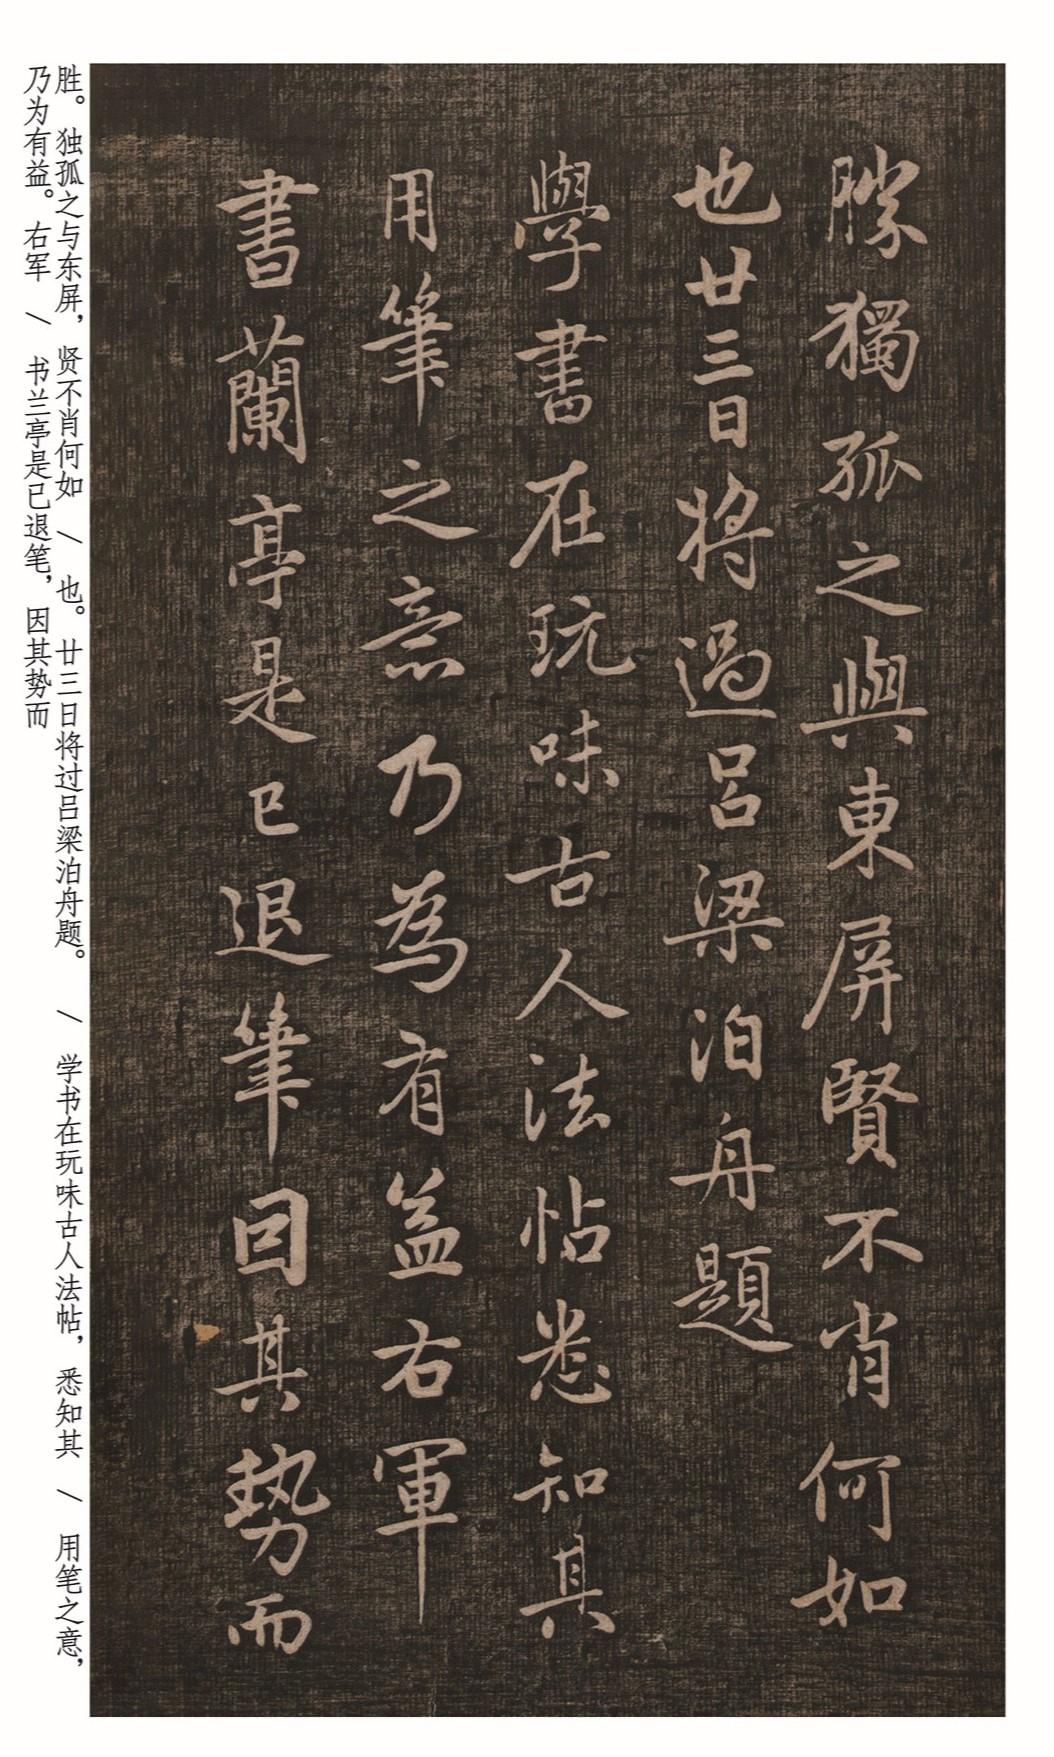 勝獨孤之與東屏賢不肖何如
也廿三日將過呂梁泊舟題
學書在玩味古人法帖悉知其
用筆之意乃為有益右軍
書蘭亭是已退筆因其勢而
胜。独孤之与东屏，贤不肖何如 / 也。廿三日将过吕梁泊舟题。 / 学书在玩味古人法帖，悉知其 / 用笔之意，
乃为有益。右军 / 书兰亭是已退笔，因其势而